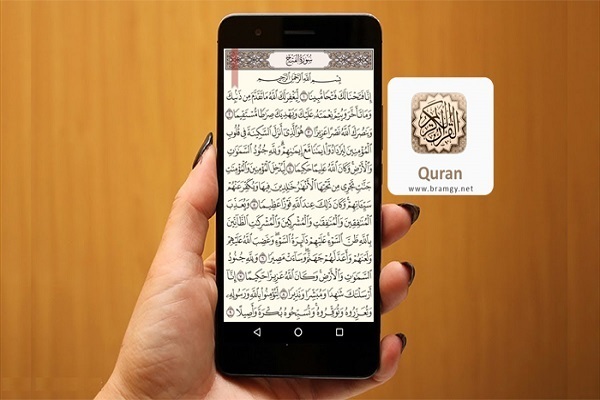 سُورَةُ الفَتْحِ
بِسْمِ اللَّهِ الرَّحْمَٰنِ الرَّحِيمِ
إِنَّا فَتَحْنَا لَكَ فَتْحًا مُّبِينًا ١ لِّيَغْفِرَ لَكَ اللَّهُ مَا تَقَدَّمَ مِن ذَنۢبِكَ
وَمَا تَأَخَّرَ وَيُتِمَّ نِعْمَتَهُۥ عَلَيْكَ وَيَهْدِيَكَ صِرَٰطًا مُّسْتَقِيمًا ٢
وَيَنصُرَكَ اللَّهُ نَصْرًا عَزِيزًا ٣ هُوَ الَّذِىٓ أَنزَلَ السَّكِينَةَ فِى قُلُوبِ
الْمُؤْمِنِينَ لِيَزْدَادُوٓا۟ إِيمَٰنًا مَّعَ إِيمَٰنِهِمْ وَلِلَّهِ جُنُودُ السَّمَٰوَٰتِ
وَالْأَرْضِ وَكَانَ اللَّهُ عَلِيمًا حَكِيمًا ٤ لِّيُدْخِلَ الْمُؤْمِنِينَ وَالْمُؤْمِنَٰتِ
جَنَّٰتٍ تَجْرِى مِن تَحْتِهَا الْأَنْهَٰرُ خَٰلِدِينَ فِيهَا وَيُكَفِّرَ عَنْهُمْ
سَيِّـَٔاتِهِمْ وَكَانَ ذَٰلِكَ عِندَ اللَّهِ فَوْزًا عَظِيمًا ٥ وَيُعَذِّبَ
الْمُنَٰفِقِينَ وَالْمُنَٰفِقَٰتِ وَالْمُشْرِكِينَ وَالْمُشْرِكَٰتِ الظَّآنِّينَ
بِاللَّهِ ظَنَّ السَّوْءِ عَلَيْهِمْ دَآئِرَةُ السَّوْءِ وَغَضِبَ اللَّهُ عَلَيْهِمْ
وَلَعَنَهُمْ وَأَعَدَّ لَهُمْ جَهَنَّمَ وَسَآءَتْ مَصِيرًا ٦ وَلِلَّهِ جُنُودُ
السَّمَٰوَٰتِ وَالْأَرْضِ وَكَانَ اللَّهُ عَزِيزًا حَكِيمًا ٧ إِنَّآ
أَرْسَلْنَٰكَ شَٰهِدًا وَمُبَشِّرًا وَنَذِيرًا ٨ لِّتُؤْمِنُوا۟ بِاللَّهِ وَرَسُولِهِۦ
وَتُعَزِّرُوهُ وَتُوَقِّرُوهُ وَتُسَبِّحُوهُ بُكْرَةً وَأَصِيلًا ٩
القرآن الكريم
Quran
www.bramgy.net